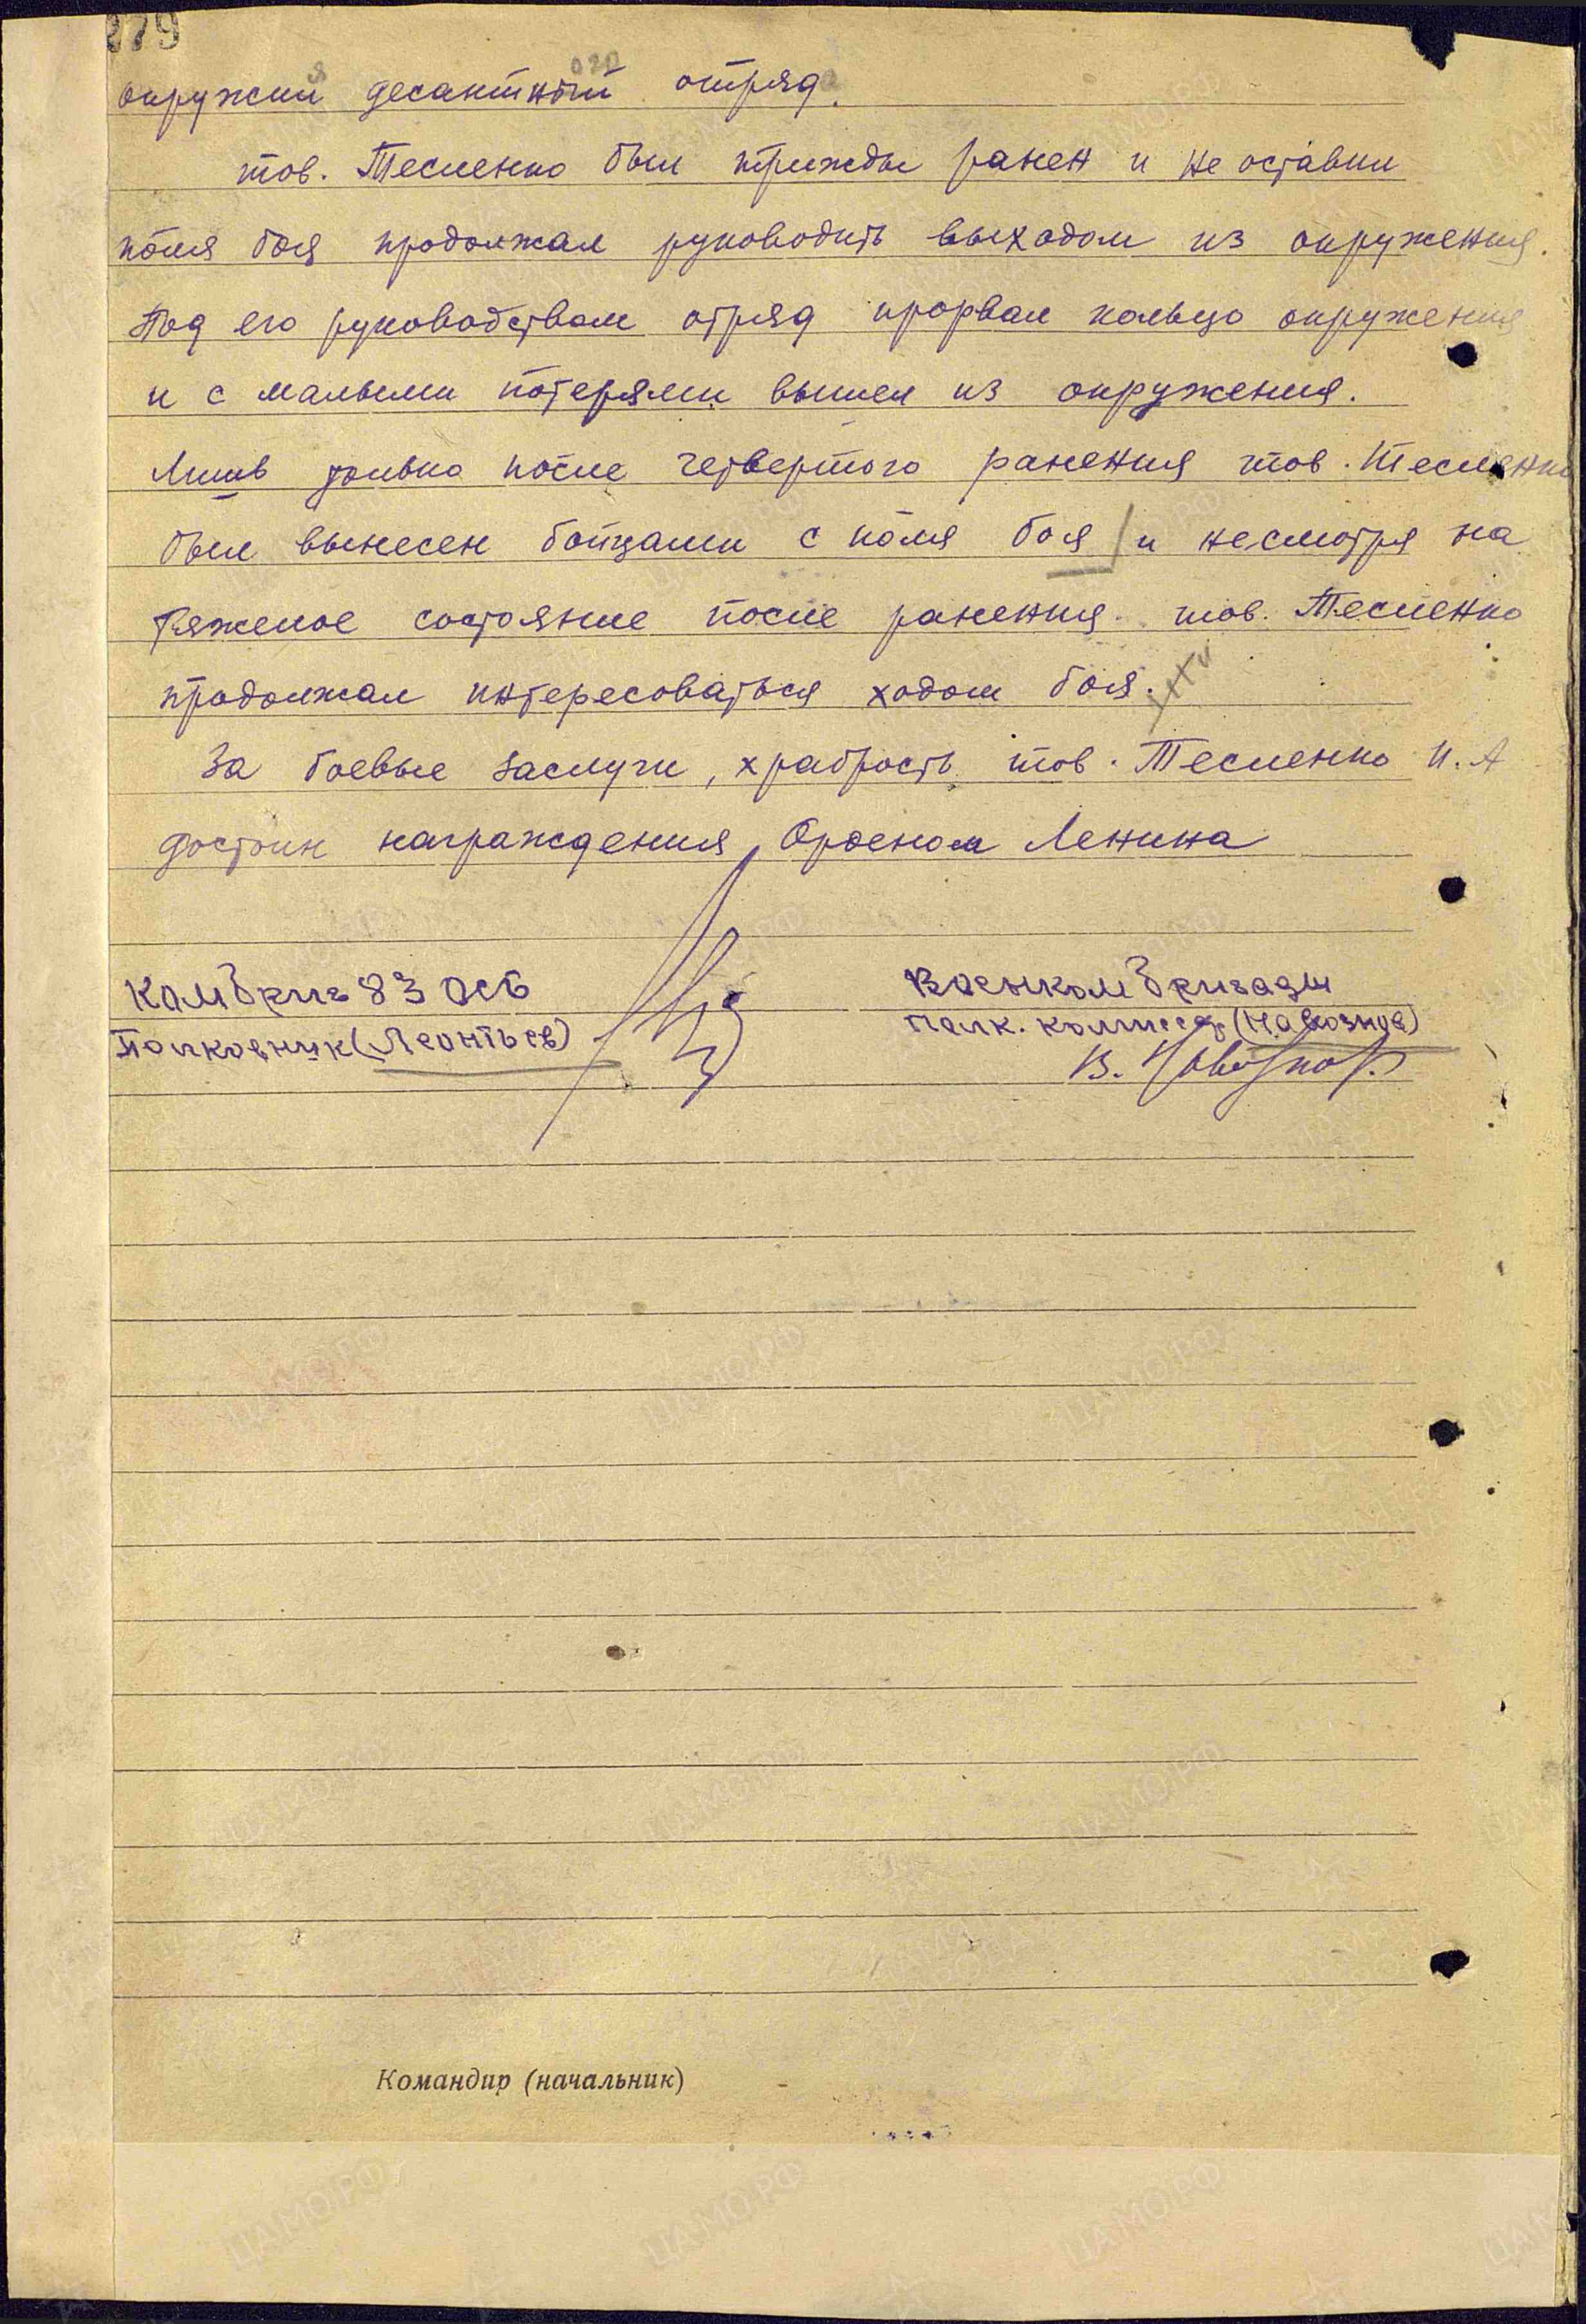 279
окружил десантный отряд.
тов. Тесленко был трижды ранен и не оставил
поля боя продолжал руководить выходом из окружения.
Под его руководством отряд прорвал кольцо окружения
и с малыми потерями вышел из окружения.
Лишь только после четвертого ранения тов. Тесленко
был вынесен бойцами с поля боя и несмотря на
тяжелое состояние после ранения. тов. Тесленко
продолжал интересоваться ходом боя.
За боевые заслуги, храбрость тов. Тесленко И. А
достоин награждения Орденом Ленина
Комбриг 83 ОСБ
Полковник (Леонтьев)
Военком бригады
полк. комиссар (Навознов)
В. Навознов
Командир (начальник)
ЦАМО.РФ